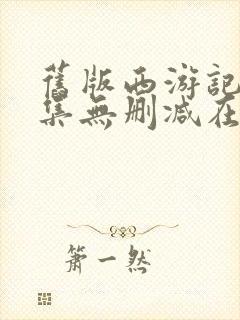 舊版西游記
集無删减在
箫一然